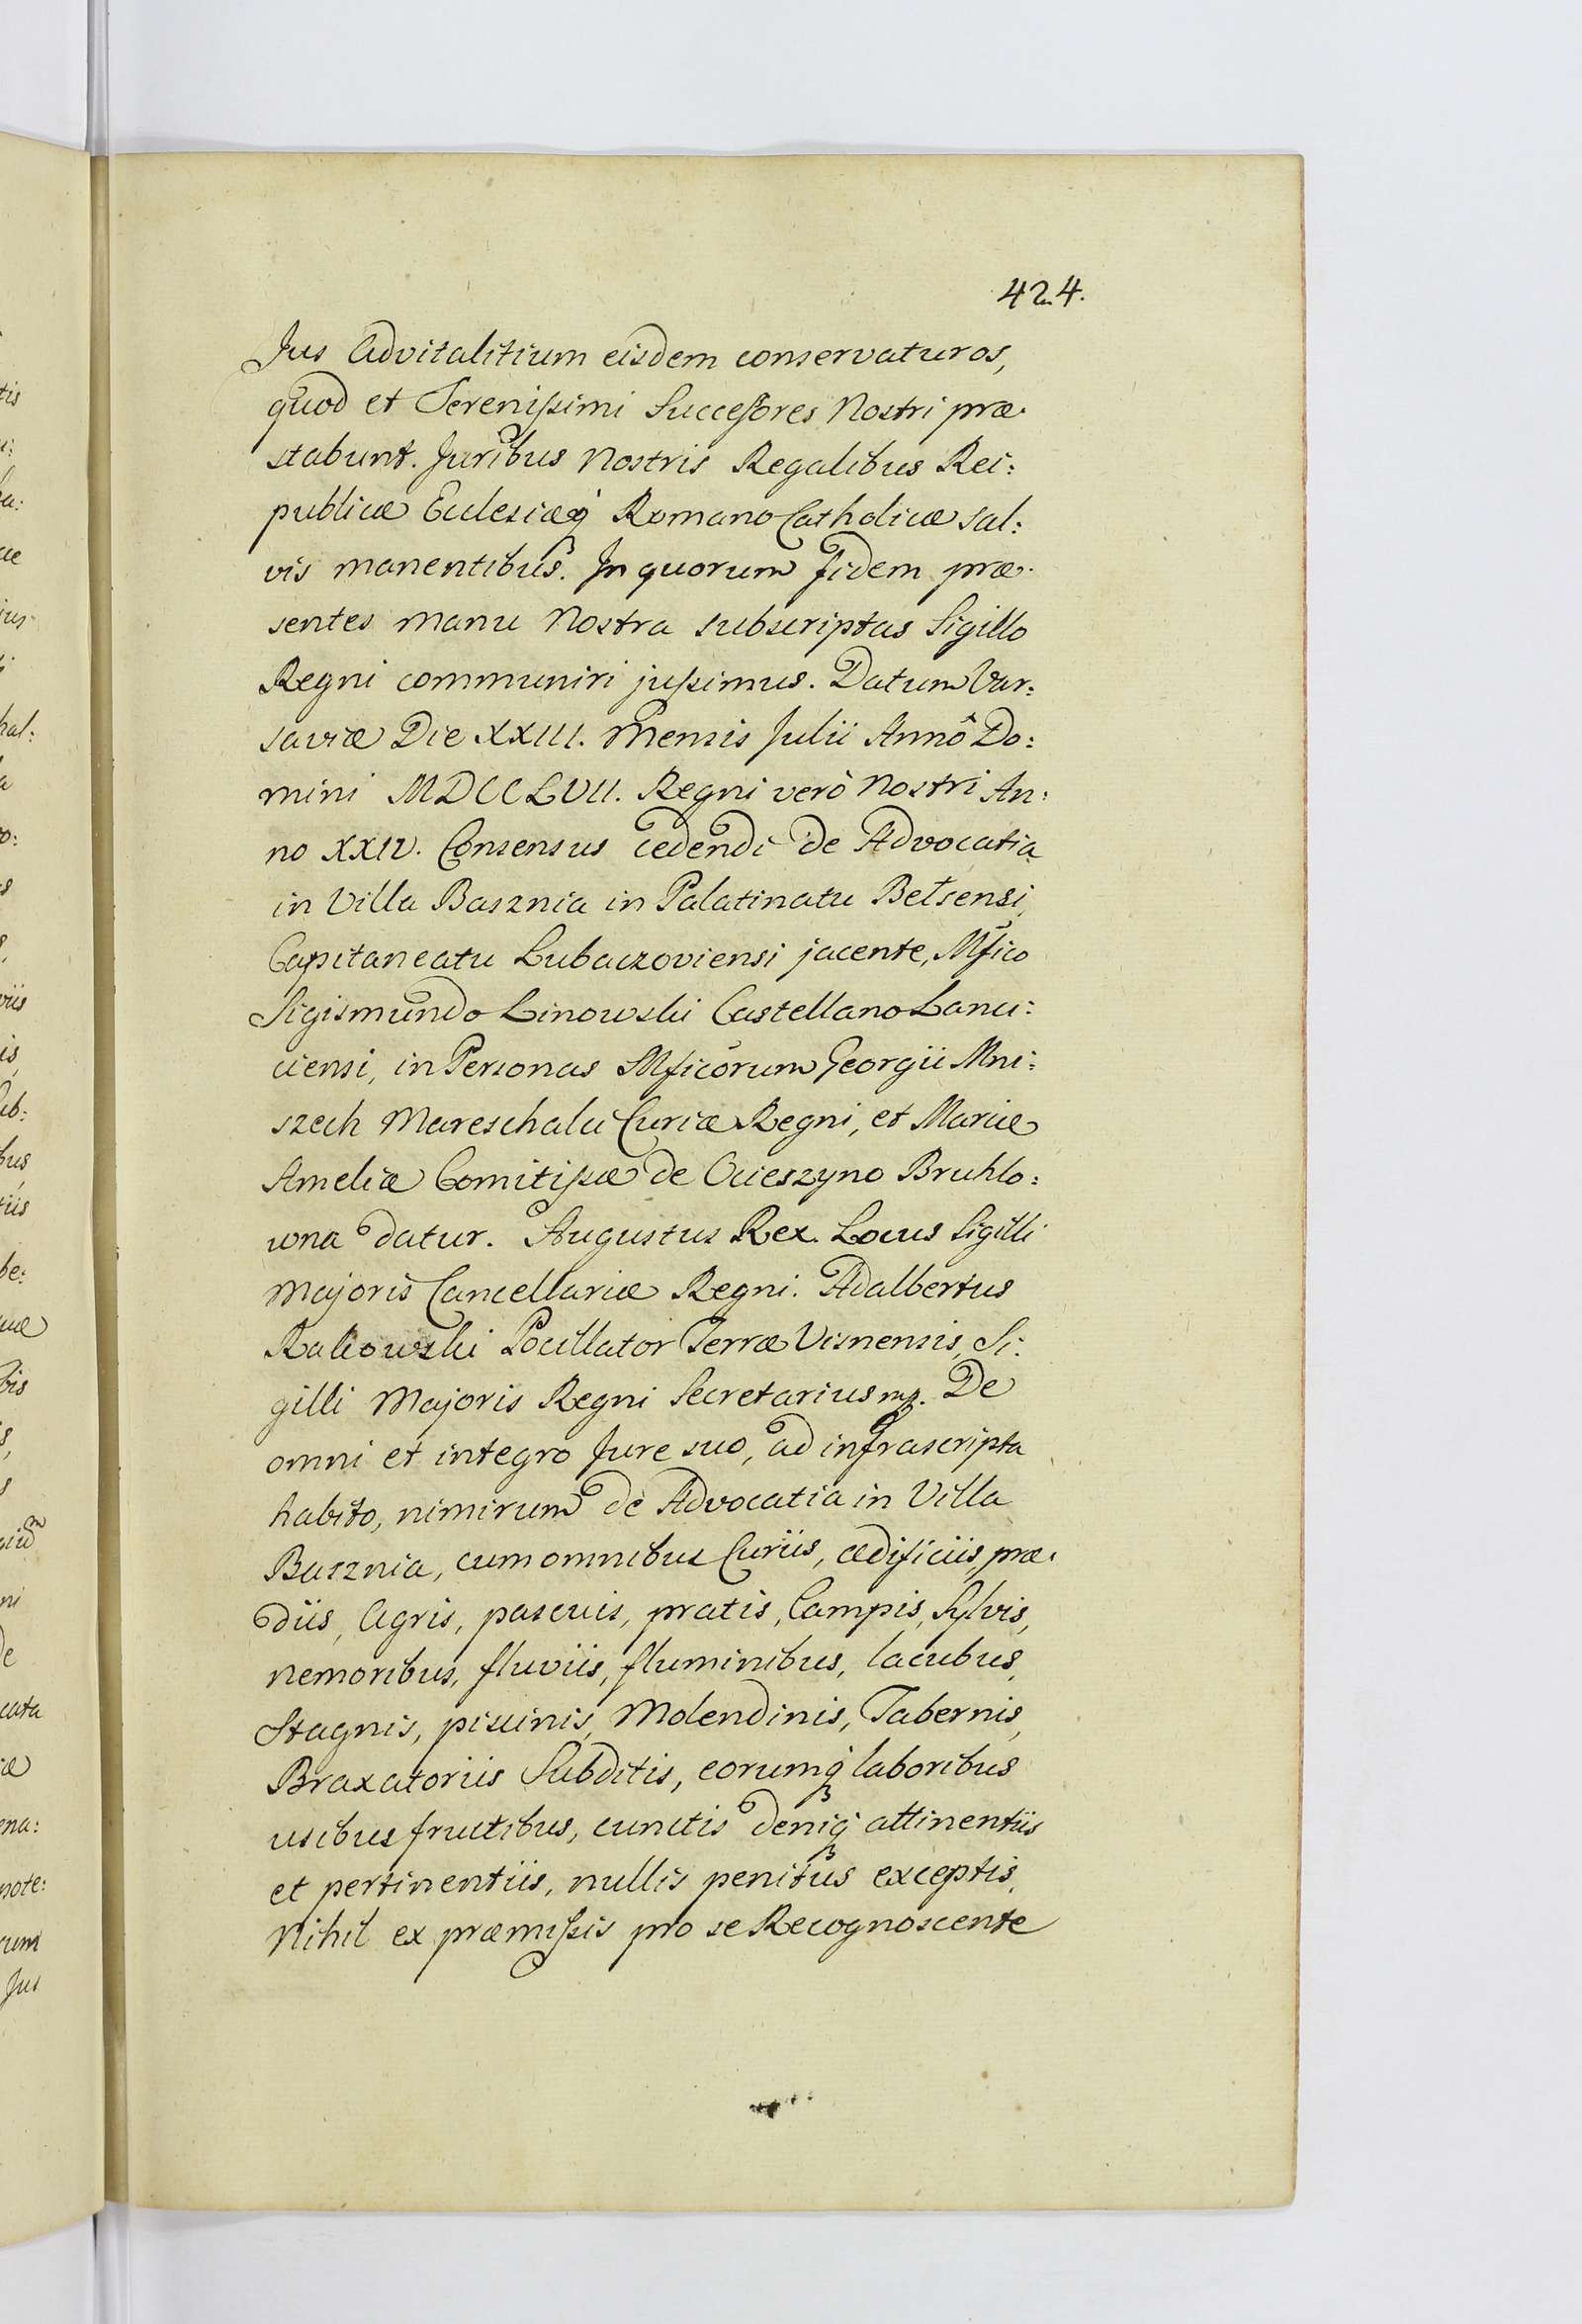 424.
Jus Advitalitium eisdem conservaturos,
quod et Serenissimi Successores Nostri præ-
stabunt. Juribus Nostris Regalibus Rei:
publicæ Eclesiæq̃ Romano Catholicæ sal:
vis manentibus. In quorum fidem præ-
sentes manu Nostra subscriptas Sigillo
Regni communiri jussimus. Datum Var:
saviæ Die XXIII. Mensis Julii Annô Do:
mini MDCCLVII. Regni verò Nostri An:
no XXIV. Consensus cedendi de Advocatia
in Villa Basznia in Palatinatu Belsensi
Capitaneatu Lubaczoviensi jacente, Mfico
Sigismundo Linowski Castellano Lanci:
ciensi, in Personas Mficorum Georgii Mni:
szech Mareschalci Curiæ Regni, et Mariæ
Ameliæ Comitissæ de Ocieszyno Bruhlo:
wna datur. Augustus Rex. Locus Sigilli
Majoris Cancellariæ Regni. Adalbertus
Rakowski Pocillator Terræ Visnensis, Si:
gilli Majoris Regni Secretarius mp. De
omni et integro Jure suo, ad infrascripta
habito, nimirum de Advocatia in Villa
Basznia, cum omnibus Curiis, ædificiis, præ-
diis, Agris, pascuis, pratis, Campis, Sylvis,
nemoribus, fluviis, fluminibus, lacubus,
Stagnis, piscinis, Molendinis, Tabernis,
Braxatoriis Subditis, eorumq̃ laboribus
usibus fructibus, cunctis deniq̃ attinentiis
et pertinentiis, nullis penitus exceptis,
Nihil ex præmissis pro se Recognoscente